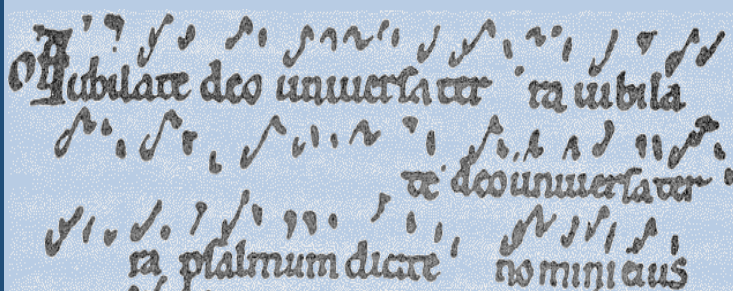 Iubilate deo uniuersa ter ra iubila
te deo uniuersa ter
ra psalmum dicite nomini eius